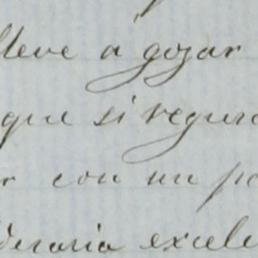 lleve a gozar
que si segura
r con un po
deraria excele